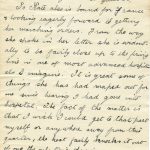 So Kate also is bound for France
& looking eagerly forward to getting
her marching orders. From the way
she spoke in her letter she is evident-
ally to be fairly close up to the firing
line in one of most advanced hospitals
etc I imagine. It is great some of
things she has had mapped out for
me on hearing I had gone into
hospital. The fact of the matter is
that I wish I could get to that part
myself or anywhere away from this